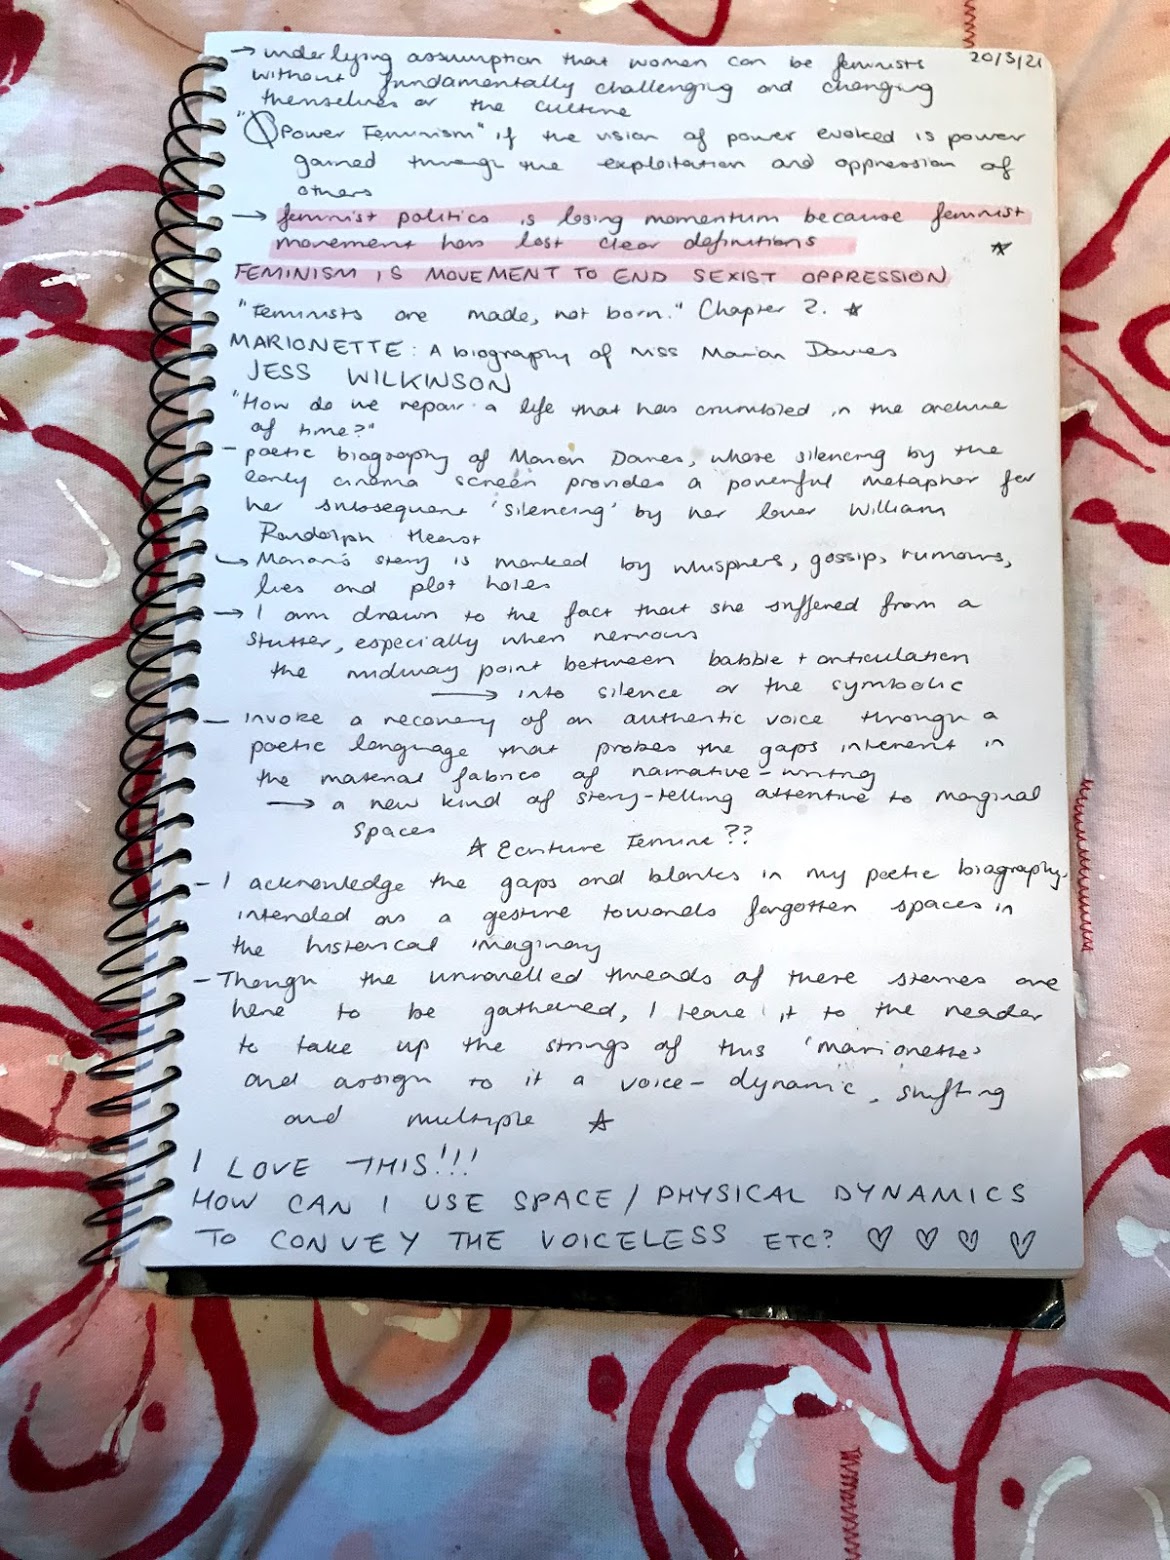 → underlying assumption that women can be feminists 20/3/21
without fundamentally challenging and changing
themselves or the culture
"Power Feminism" if the vision of power evoked is power
gained through the exploitation and oppression of
others
→ feminist politics is losing momentum because feminist
movement has lost clear definitions ☆
FEMINISM IS MOVEMENT TO END SEXIST OPPRESSION
"Feminists are made, not born." Chapter 2. ☆
MARIONETTE: A biography of Miss Marion Davies
JESS WILKINSON
"How do we repair a life that has crumbled in the archive
of time?"
- poetic biography of Marion Davies, whose silencing by the
early cinema screen provides a powerful metaphor for
her subsequent 'silencing' by her lover William
Randolph Hearst
↳ Marion's story is marked by whispers, gossip, rumours,
lies and plot holes
→ I am drawn to the fact that she suffered from a
stutter, especially when nervous
the midway point between babble + articulation
→ into silence or the symbolic
- invoke a recovery of an authentic voice through a
poetic language that probes the gaps inherent in
the material fabrics of narrative-writing
→ a new kind of story-telling attentive to marginal
spaces
☆ Ecriture Feminine??
- I acknowledge the gaps and blanks in my poetic biography,
intended as a gesture towards forgotten spaces in
the historical imaginary
- Though the unravelled threads of these stories are
here to be gathered, I leave it to the reader
to take up the strings of this 'marionette'
and assign to it a voice - dynamic, shifting
and multiple ☆
I LOVE THIS!!!
HOW CAN I USE SPACE / PHYSICAL DYNAMICS
TO CONVEY THE VOICELESS ETC? ♡ ♡ ♡ ♡